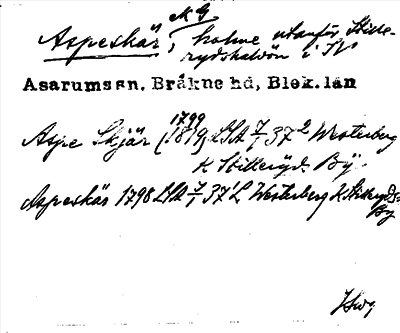 Aspeskär, holme utanför Stille-
rydshalvön i SV
Asarumssn. Bräkne hd, Blek. län
1799
Aspe Skjär (1819, LSA 7/1 37² Westerberg
K Stilleryd. By.
Aspeskär 1798 LSA 7/1 37¹ L Westerberg K Stilleryds
By